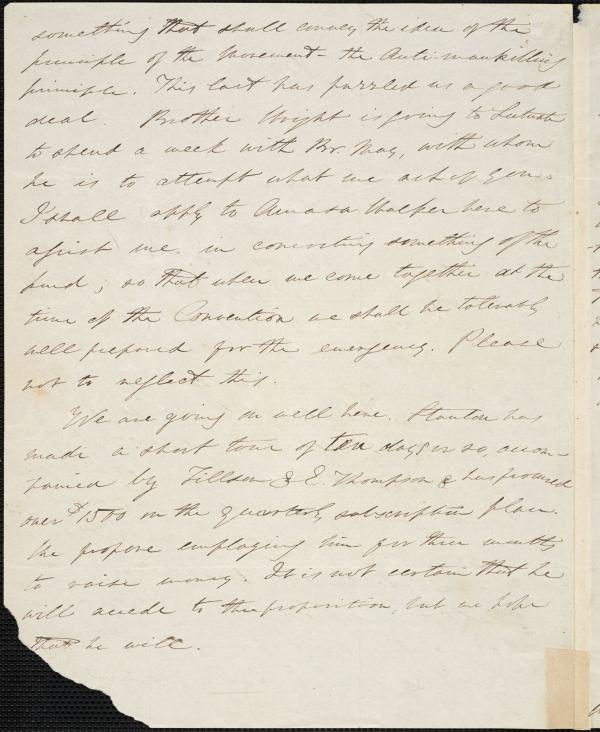 something that shall convey the idea of the
principle of the Movement - the Anti-mankilling
principle. This last has puzzled us a good
deal. Brother Wright is going to Scituate
to spend a week with Br. May, with whom
he is to attempt what we ask of you.
I shall apply to Amasa Walker here to
assist me in concocting something of the
kind; so that when we come together at the
time of the Convention we shall be tolerably
well prepared for the emergency. Please
not to neglect this.
We are going on well here. Stanton has
made a short tour of ten days or so, accom-
panied by Tillson & E. Thompson & has procured
over $1500 on the quarterly subscription plan.
We propose employing him for three months
to raise money. It is not certain that he
will accede to the proposition, but we hope
that he will.